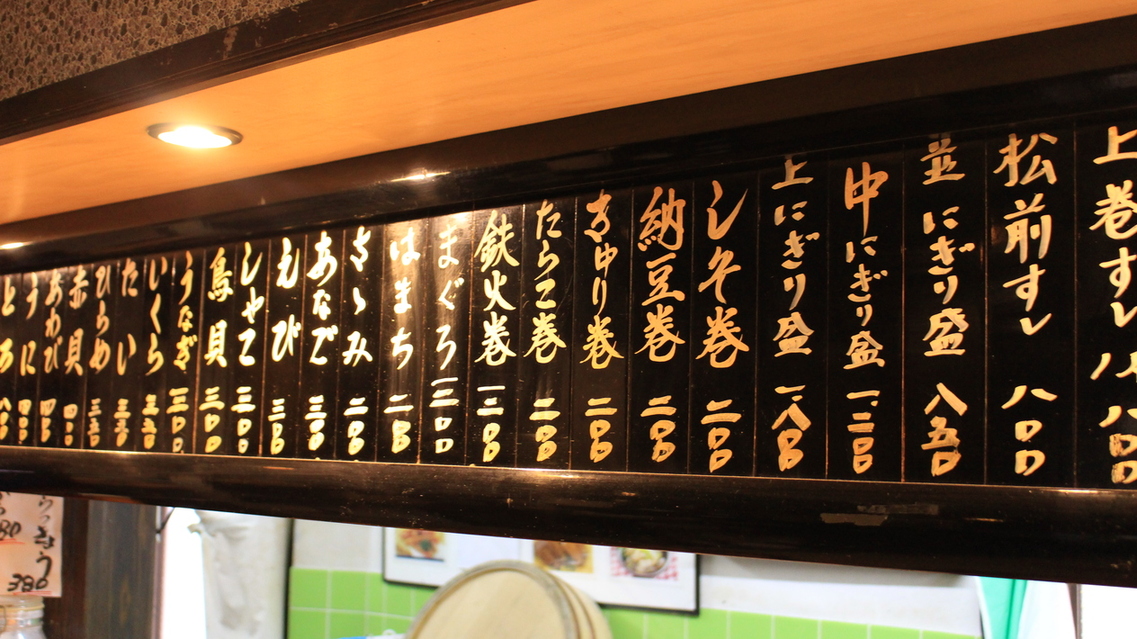 上巻すし
松前すし 八〇〇
並にぎり盛 八五〇
中にぎり盛 一、二〇〇
上にぎり盛 一、八〇〇
しそ巻 二〇〇
納豆巻 二〇〇
きゅり巻 二〇〇
たらこ巻 二〇〇
鉄火巻 三〇〇
まぐろ 三〇〇
はまち 二〇〇
さゝみ 二〇〇
あなご 三〇〇
えび 三〇〇
しゃこ 三〇〇
鳥貝 三〇〇
うなぎ 三〇〇
いくら 三五〇
たい 三五〇
ひらめ 三五〇
赤貝 四〇〇
あわび 四〇〇
うに 四〇〇
とろ
らっきょう
380